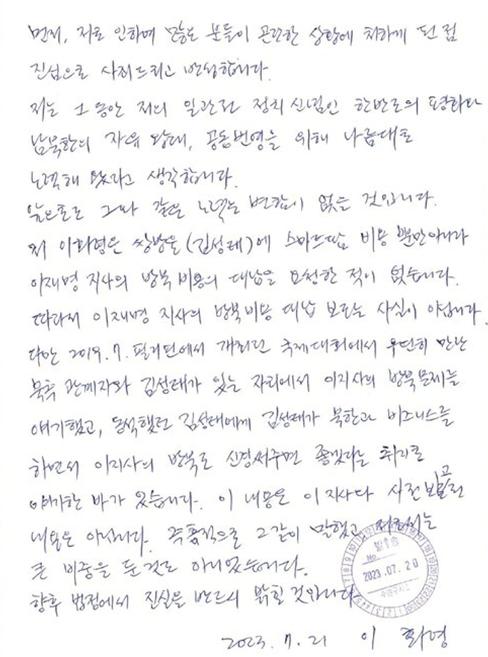 먼저, 저로 인하여 많은 분들이 곤란한 상황에 처하게 된 점
진심으로 사죄드리고 반성합니다.
저는 그동안 저의 일관된 정치신념인 한반도의 평화와
남북한의 자유 왕래, 공동번영을 위해 나름대로
노력해 왔다고 생각합니다.
앞으로도 그와 같은 노력은 변함이 없을 것입니다.
저 이화영은 쌍방울(김성태)에 스마트팜 비용 뿐만아니라
이재명 지사의 방북 비용의 대납을 요청한 적이 없습니다.
따라서 이재명 지사의 방북비용 대납 보도는 사실이 아닙니다.
다만 2019.7. 필리핀에서 개최된 국제대회에서 우연히 만난
북측 관계자와 김성태가 있는 자리에서 이지사의 방북문제를
얘기했고, 동석했던 김성태에게 김성태가 북한과 비즈니스를
하면서 이지사의 방북도 신경써주면 좋겠다는 취지로
얘기한 바가 있습니다. 이 내용은 이지사와 사전 보고된
내용은 아닙니다. 즉흥적으로 그같이 말했고 저로서는
큰 비중을 둔 것도 아니었습니다.
향후 법정에서 진실을 반드시 밝힐 것입니다
No.
2023.07.20
2023. 7. 21 이 화영